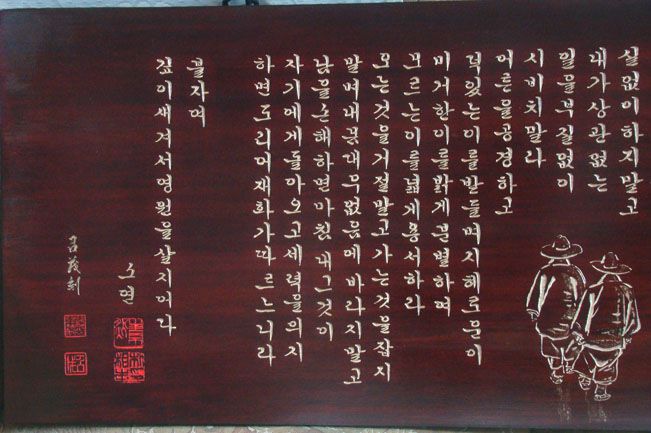 실없이하지말고
내가상관없는
일을부질없이
시비치말라
어른을공경하고
덕있는이를받들며지혜로운이
미거한이를밝게분별하며
모르는이를넓게용서하라
오는것을거절말고가는것을잡지
말며내몸대우없음에바라지말고
남을손해하면마침내그것이
자기에게돌아오고세력을의지
하면도리어재화가따르느니라
불자여
깊이새겨서영원을살지어다